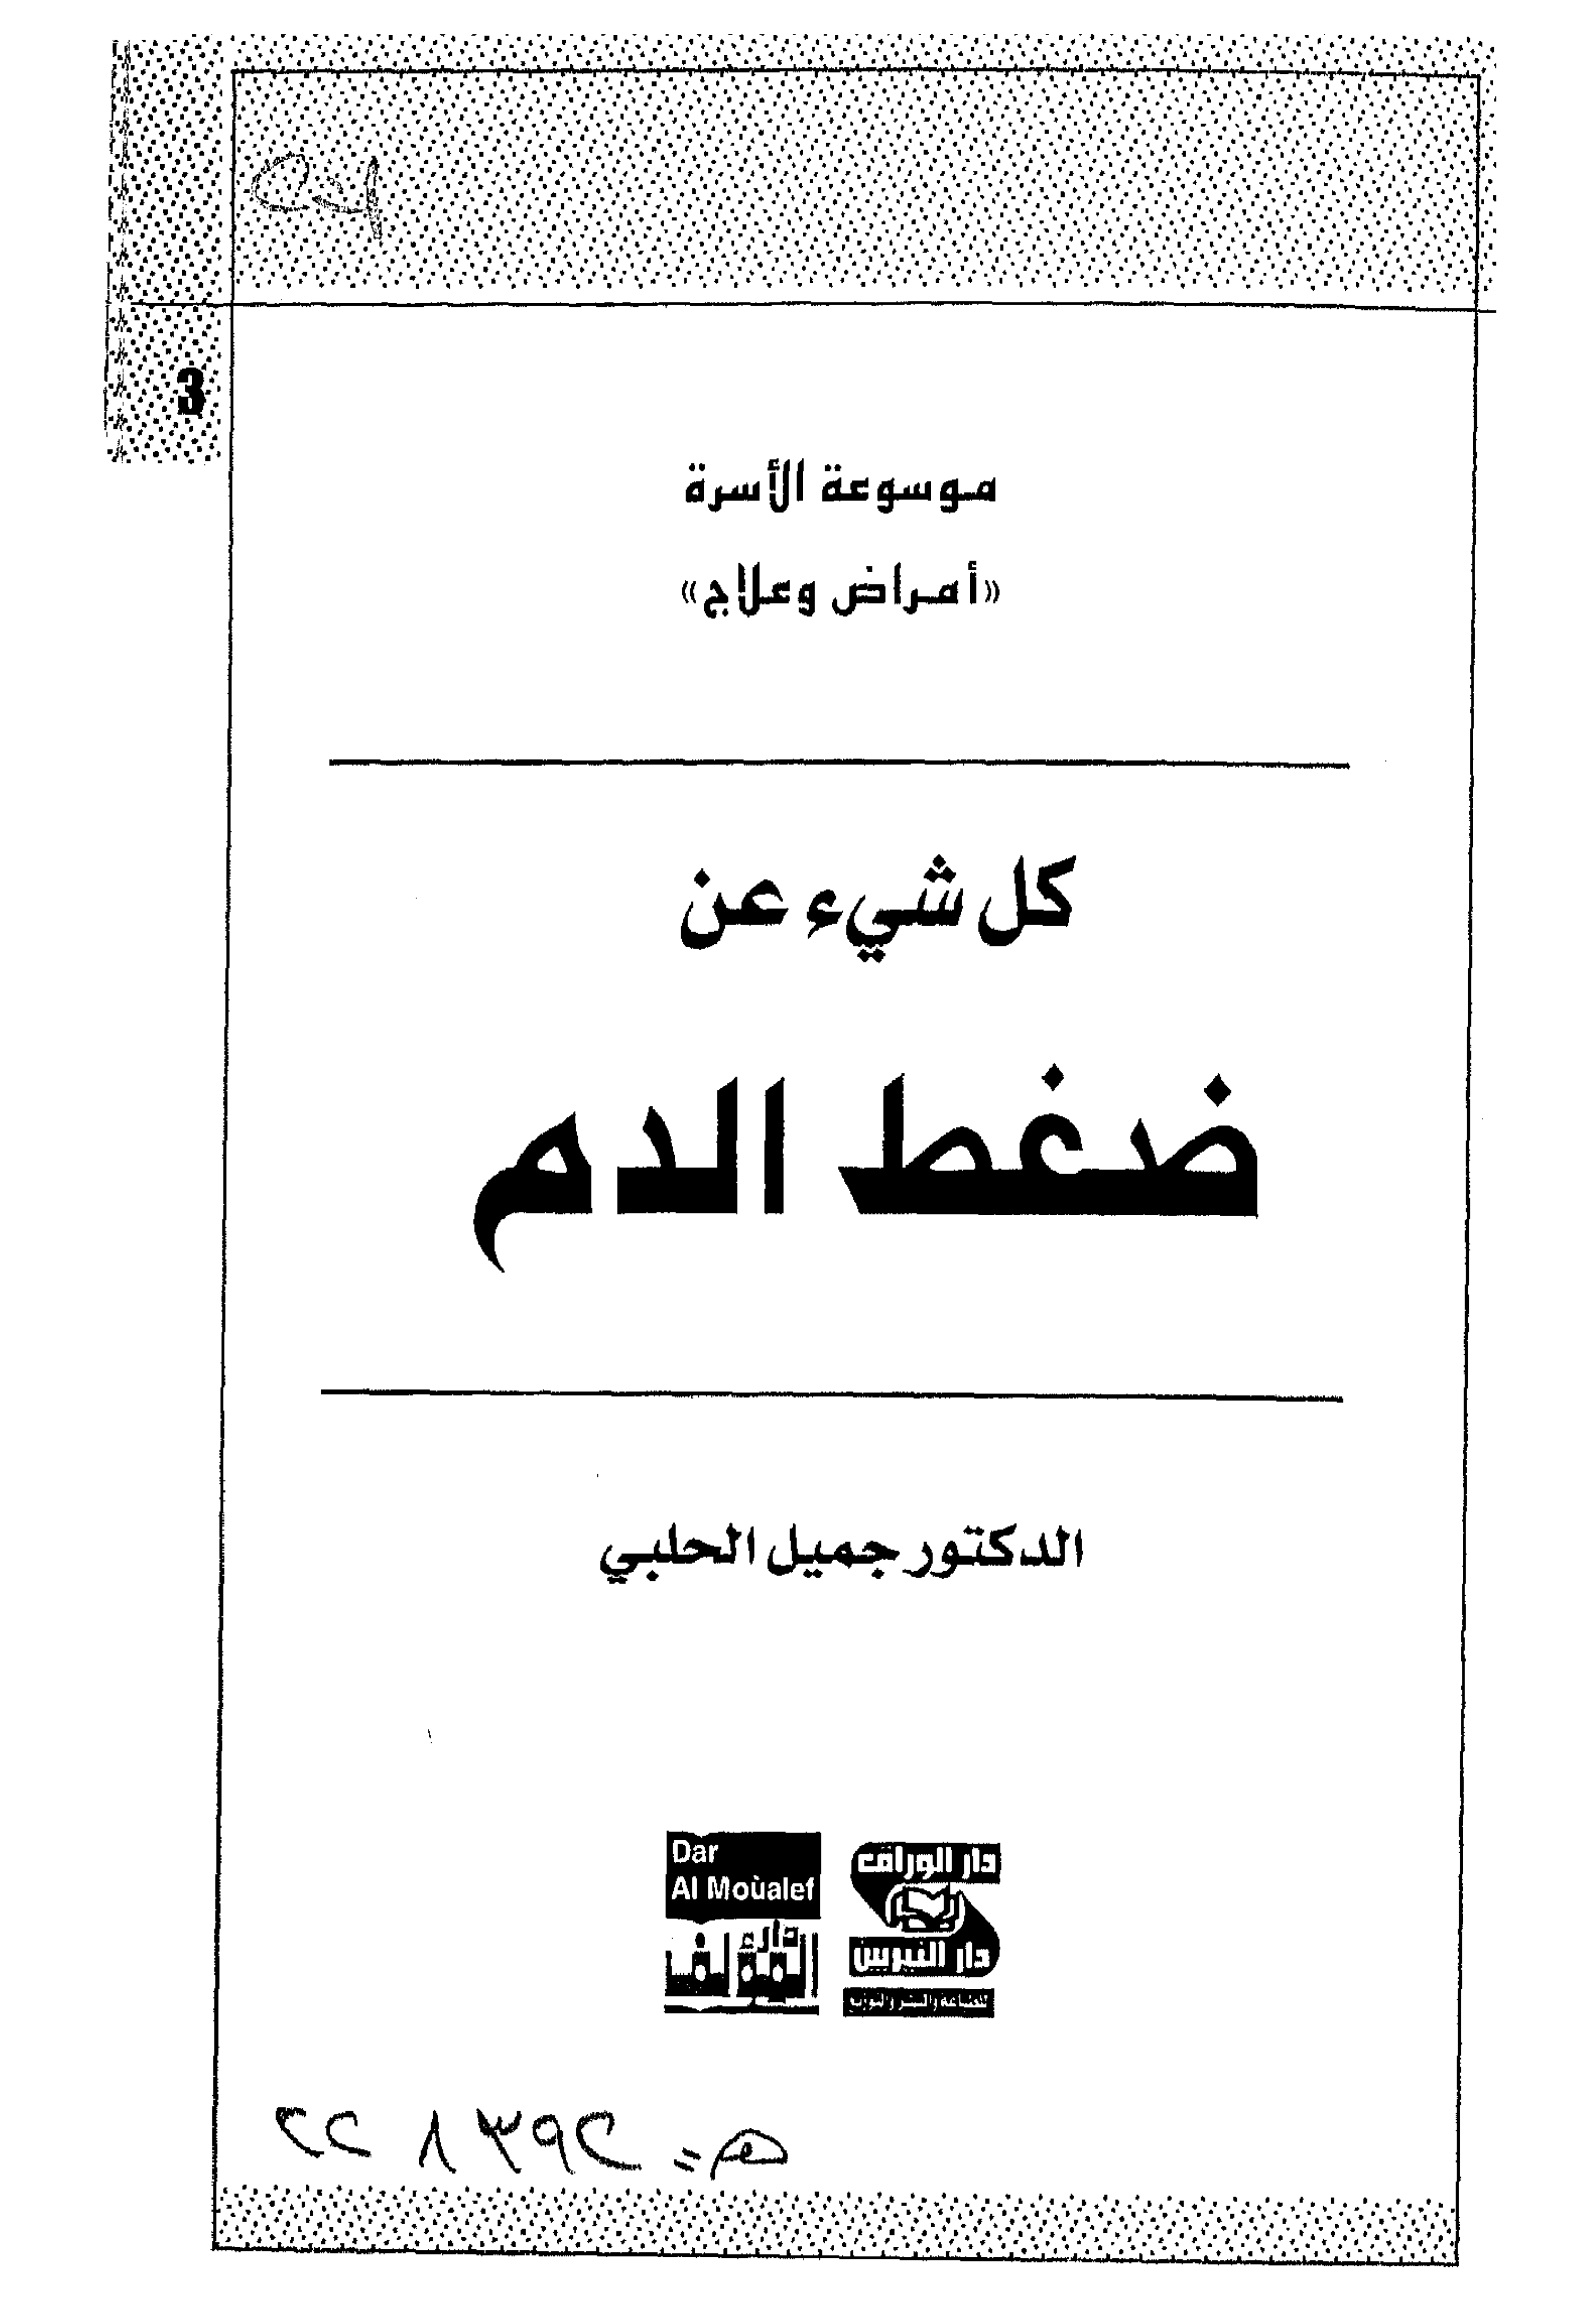 3
موسوعة الأسرة
«أمراض وعلاج»
كل شيء عن
ضغط الدم
الدكتور جميل الحلبي
Dar
Al Moùalef
دار
المؤلف
دار الوراق
دار النيربين
للطباعة والنشر والتوزيع